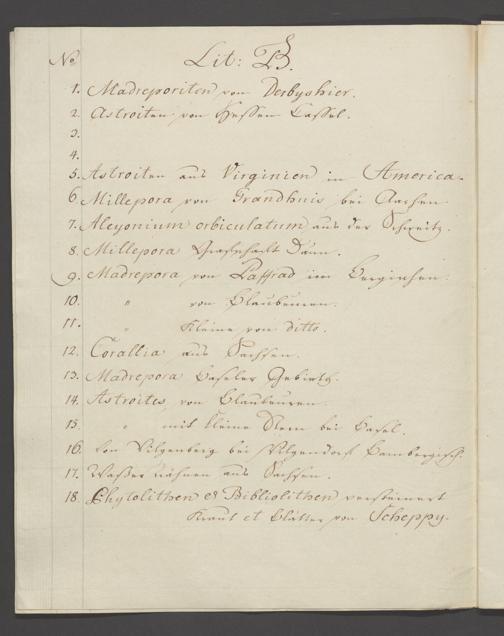 No Lit: B.
1. Madreporiten von Derbyshier.
2. Astroiten von Hessen Cassel.
3.
4.
5. Astroiten aus Virginien in America.
6 Millepora von Grandhuis bei Aachen
7. Alcyonium orbiculatum aus der Schweitz.
8. Millepora Grafschaft
9. Madrepora von Paffrad im
10. " von Blaubeuren.
11. " Kleine von ditto.
12. Corallia aus Sachsen.
13. Madrepora Baseler Gebirth.
14. Astroites von Blaubeuren
15. " mit kleine Stern bei Basel.
16. Von Vilgenberg bei Vilgendorf Bambergisch.
17. aus Sachsen.
18. Phytolithen et Bibliolithen versteinert
Kraut et Blätter von Scheppy.